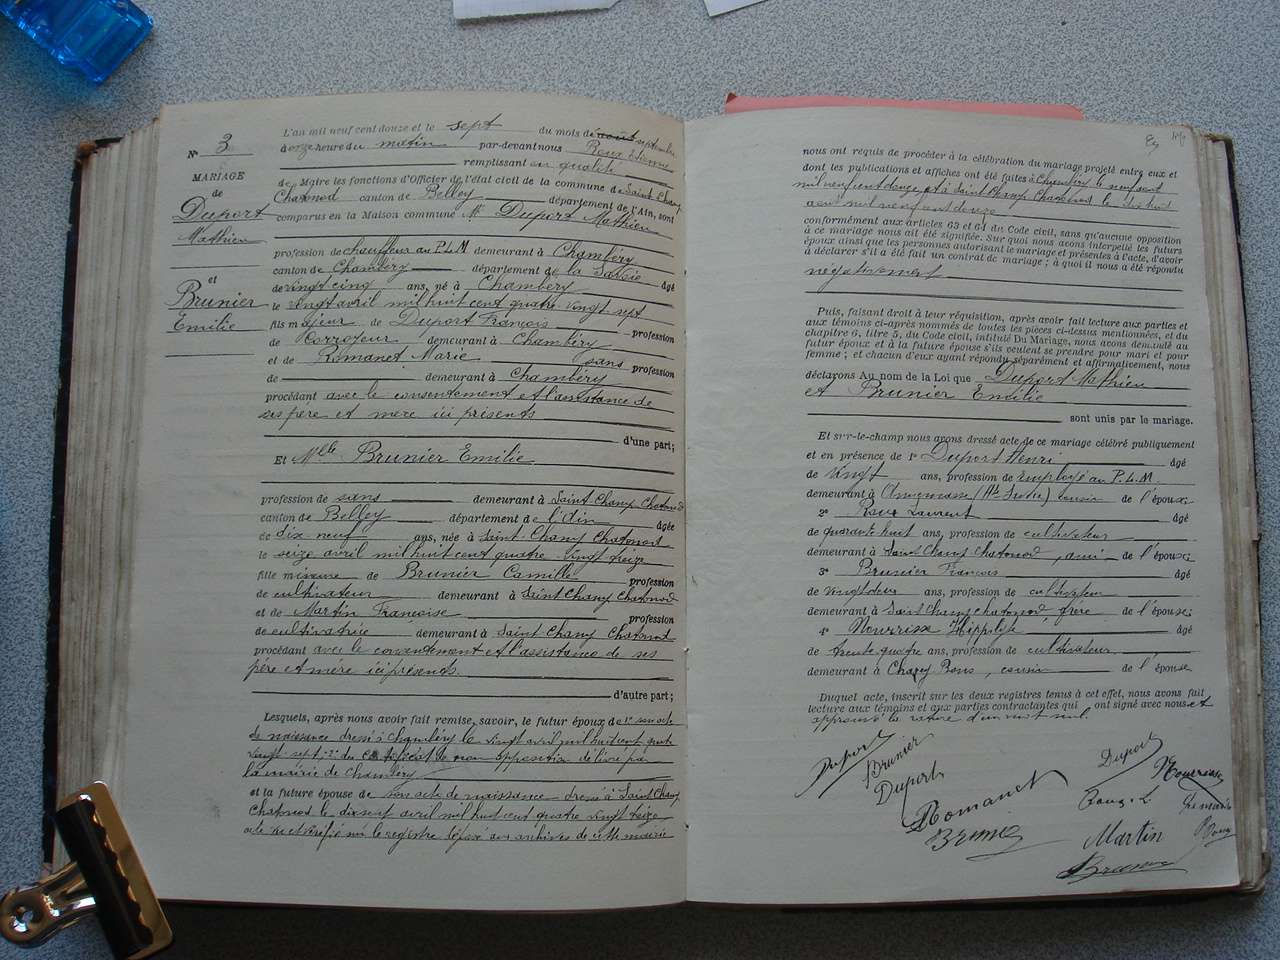 N° 3
MARIAGE
de
Duport
Mathieu
et
Brunier
Emilie
L'an mil neuf cent douze et le sept du mois de août septembre
à onze heure du matin par-devant nous Roux Etienne
remplissant en qualité
de Maire les fonctions d'Officier de l'état civil de la commune de Saint Champ
Chatonod canton de Belley département de l'Ain, sont
comparus en la Maison commune Mr Duport Mathieu
profession de chauffeur au P.L.M demeurant à Chambéry
canton de Chambéry département de la Savoie âgé
de vingt cinq ans, né à Chambéry
le vingt avril mil huit cent quatre vingt sept
fils majeur de Duport François profession
de Corroyeur demeurant à Chambéry
et de Romanet Marie sans profession
de demeurant à Chambéry
procédant avec le consentement et l'assistance de
ses père et mère ici présents
d'une part;
Et Mlle Brunier Emilie
profession de sans demeurant à Saint Champ Chatonod
canton de Belley département de l'Ain âgée
de dix neuf ans, née à Saint Champ Chatonod
le seize avril mil huit cent quatre vingt treize
fille mineure de Brunier Camille profession
de cultivateur demeurant à Saint Champ Chatonod
et de Martin Françoise profession
de cultivatrice demeurant à Saint Champ Chatonod
procédant avec le consentement et l'assistance de ses
père et mère ici présents.
d'autre part;
Lesquels, après nous avoir fait remise, savoir, le futur époux de 1° son acte
de naissance dressé à Chambéry le vingt avril mil huit cent quatre
vingt sept; 2° du certificat de non opposition délivré par
la mairie de Chambéry
et la future épouse de son acte de naissance dressé à Saint Champ
Chatonod le avril mil huit cent quatre vingt treize
sur le registre déposé aux archives de cette mairie
89
nous ont requis de procéder à la célébration du mariage projeté entre eux et
dont les publications et affiches ont été faites à Chambéry le
mil neuf cent douze et à Saint Champ Chatonod le dix huit
août mil neuf cent douze
conformément aux articles 63 et 64 du Code civil, sans qu'aucune opposition
à ce mariage nous ait été signifiée. Sur quoi nous avons interpellé les futurs
époux ainsi que les personnes autorisant le mariage et présentes à l'acte, d'avoir
à déclarer s'il a été fait un contrat de mariage; à quoi il nous a été répondu
négativement
Puis, faisant droit à leur réquisition, après avoir fait lecture aux parties et
aux témoins ci-après nommés de toutes les pièces ci-dessus mentionnées, et du
chapitre 6, titre 5, du Code civil, intitulé Du Mariage, nous avons demandé au
futur époux et à la future épouse s'ils veulent se prendre pour mari et pour
femme; et chacun d'eux ayant répondu séparément et affirmativement, nous
déclarons Au nom de la Loi que Duport Mathieu
et Brunier Emilie
sont unis par le mariage.
Et sur-le-champ nous avons dressé acte de ce mariage célébré publiquement
et en présence de 1° Duport Henri âgé
de vingt ans, profession de Employé au P.L.M.
demeurant à Annemasse (Hte Savoie) cousin de l'époux;
2° Roux Laurent âgé
de quarante huit ans, profession de cultivateur
demeurant à Saint Champ Chatonod, ami de l'épouse;
3° Brunier François âgé
de vingt deux ans, profession de cultivateur
demeurant à Saint Champ Chatonod, frère de l'épouse;
4° Hippolyte âgé
de trente quatre ans, profession de cultivateur
demeurant à Chazey Bons, cousin de l'épouse
Duquel acte, inscrit sur les deux registres tenus à cet effet, nous avons fait
lecture aux témoins et aux parties contractantes qui ont signé avec nous et
approuvé la rature d'un mot nul.
Duport
Brunier
Duport
Romanet
Brunier
Duport
Roux L
Martin
Roux